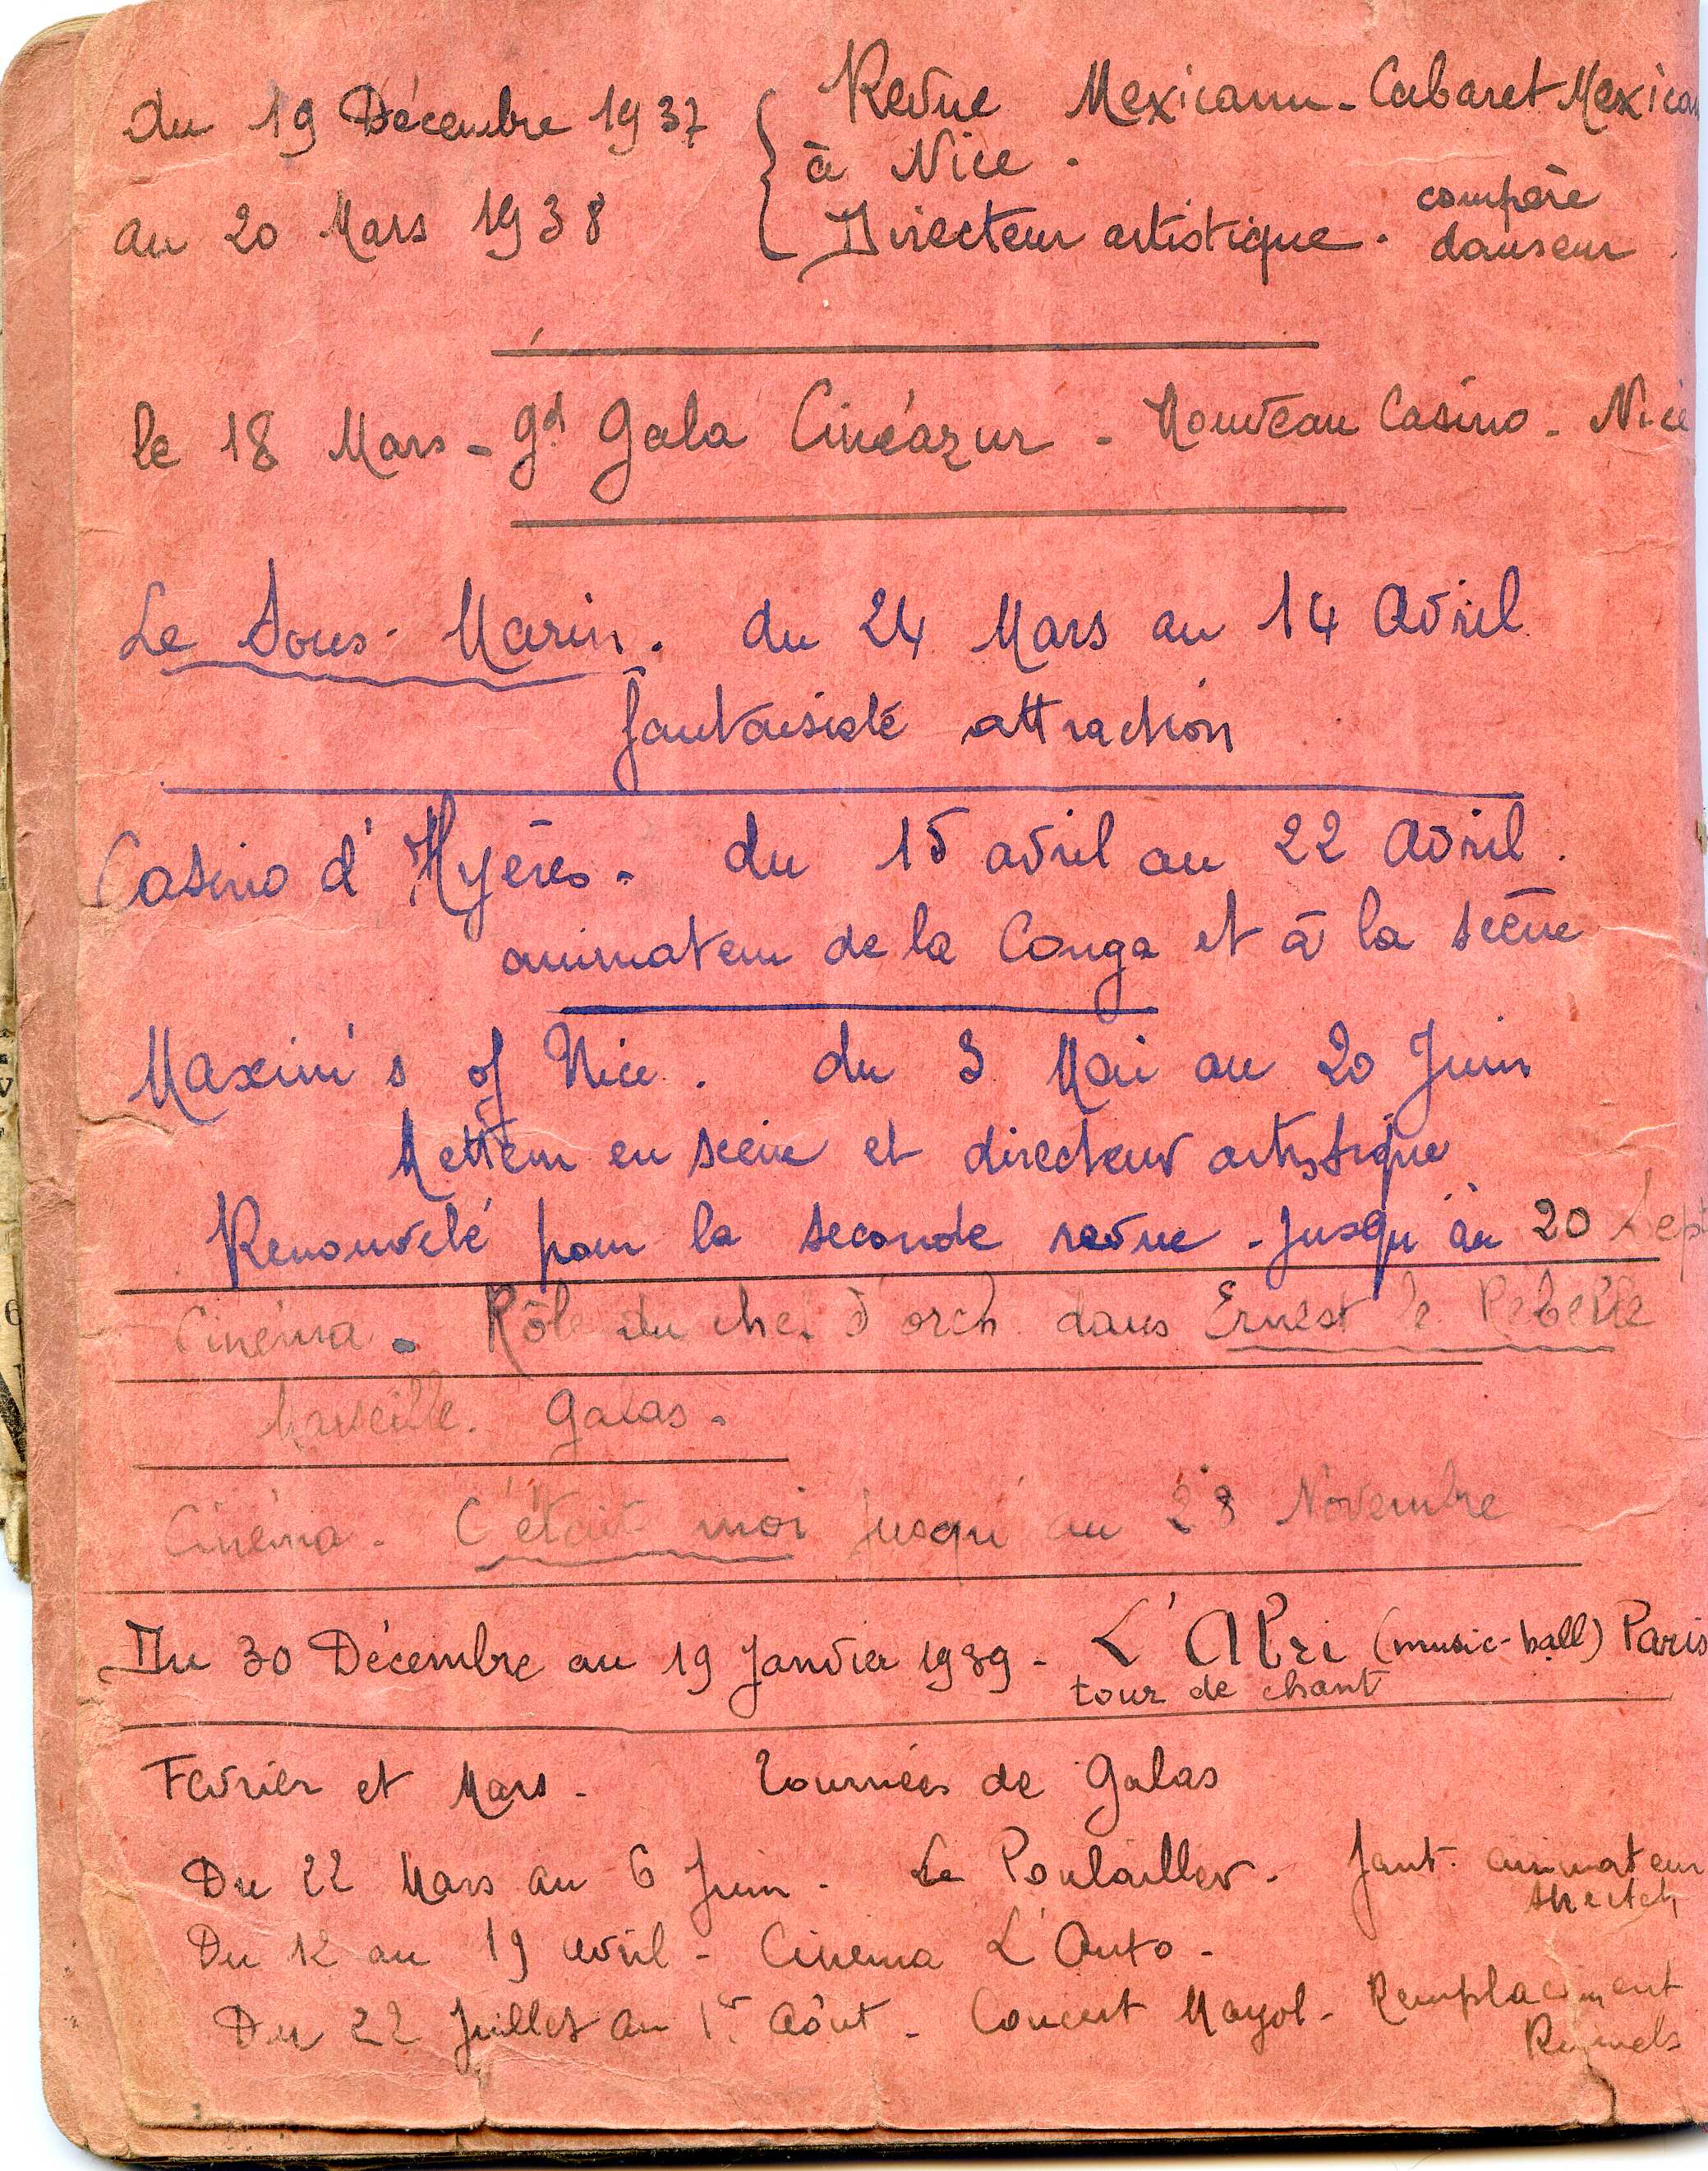 Du 19 Décembre 1937 { Revue Mexicaine - Cabaret Mexicain
à Nice.
au 20 Mars 1938 Directeur artistique. compère
danseur.
le 18 Mars - gd Gala Cinéazur - Nouveau Casino - Nice
Le Sous-Marin. du 24 Mars au 14 Avril
fantaisiste attraction
Casino d'Hyères. du 15 avril au 22 Avril.
animateur de la Conga et à la scène
Maxim's of Nice. du 3 Mai au 20 Juin
Metteur en scène et directeur artistique
Renouvelé pour la seconde revue - jusqu'au 20 Sept
Cinéma. Rôle du chef d'orch. dans Ernest le Rebelle
Marseille. Galas.
Cinéma. C'était moi jusqu'au 28 Novembre
Du 30 Décembre au 19 Janvier 1939 - L'Abri (music-hall) Paris
tour de chant
Février et Mars - Tournées de Galas
Du 22 Mars au 6 Juin - Le Poulailler - fant. animateur
sketch
Du 12 au 19 avril - Cinéma L'Auto -
Du 22 Juillet au 1er Août - Concert Mayol - Remplacement